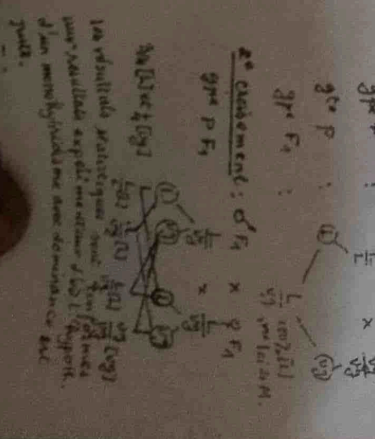 gpe P : L/L x vg/vg
gte P : (L) (vg)
gpe F1 : L/vg 100% [L], 1ère loi de M.
2e croisement : ♂ F1 x ♀ F1
gpe P F1 L/vg x L/vg
(L) (vg) (L) (vg)
L/L [L] L/vg [L] L/vg [L] vg/vg [vg]
3/4 [L] et 1/4 [vg]
Les résultats statistiques sont conformes
aux résultats expérimentaux d'où l'hypoth.
d'un monohybridisme avec dominance est
juste.